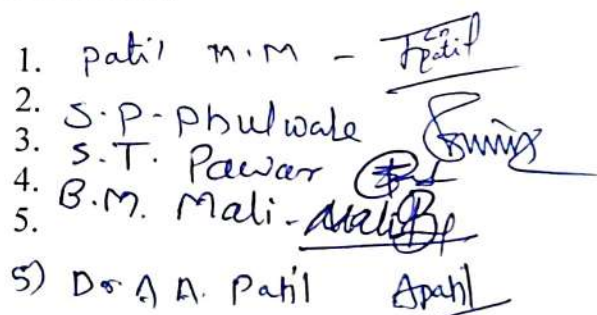 1. Patil M.M - Patil
2. S.P. Phulwale
3. S.T. Pawar
4. B.M. Mali - Mali B
5.
5) Dr A A. Patil Apatil